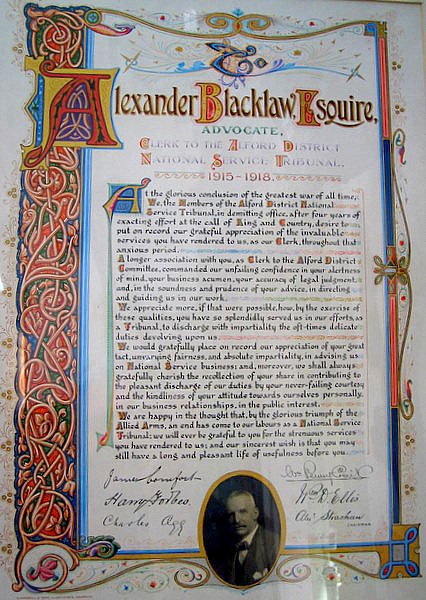 To
Alexander Blacklaw, Esquire,
ADVOCATE,
CLERK TO THE ALFORD DISTRICT
NATIONAL SERVICE TRIBUNAL.
1915-1918.
At the glorious conclusion of the greatest war of all time,
We, the Members of the Alford District National
Service Tribunal, in demitting office, after four years of
exacting effort at the call of King and Country, desire to
put on record our grateful appreciation of the invaluable
services you have rendered to us, as our Clerk, throughout that
anxious period.
A longer association with you, as Clerk to the Alford District
Committee, commanded our unfailing confidence in your alertness
of mind, your business acumen, your accuracy of legal judgment
and, in the soundness and prudence of your advice, in directing
and guiding us in our work.
We appreciate more, if that were possible, how, by the exercise of
these qualities, you have so splendidly served us in our efforts, as
a Tribunal, to discharge with impartiality the oft-times delicate
duties devolving upon us.
We would gratefully place on record our appreciation of your great
tact, unvarying fairness, and absolute impartiality, in advising us
on National Service business; and, moreover, we shall always
gratefully cherish the recollection of your share in contributing to
the pleasant discharge of our duties by your never-failing courtesy
and the kindliness of your attitude towards ourselves personally,
in our business relationships, in the public interest.
We are happy in the thought that, by the glorious triumph of the
Allied Arms, an end has come to our labours as a National Service
Tribunal; we will ever be grateful to you for the strenuous services
you have rendered to us; and our sincerest wish is that you may
still have a long and pleasant life of usefulness before you.
James Comfort
Harry Forbes
Charles Agg
Wm R. Ellis
Alex Strachan
CHAIRMAN